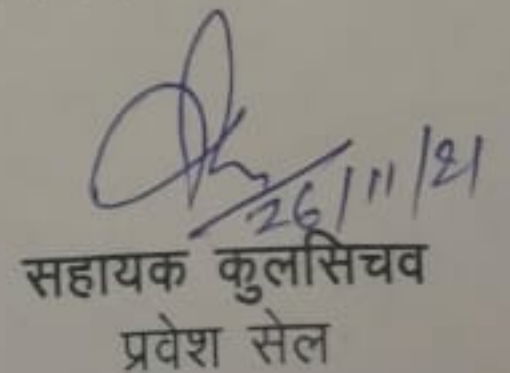 26/11/21
सहायक कुलसिचव
प्रवेश सेल